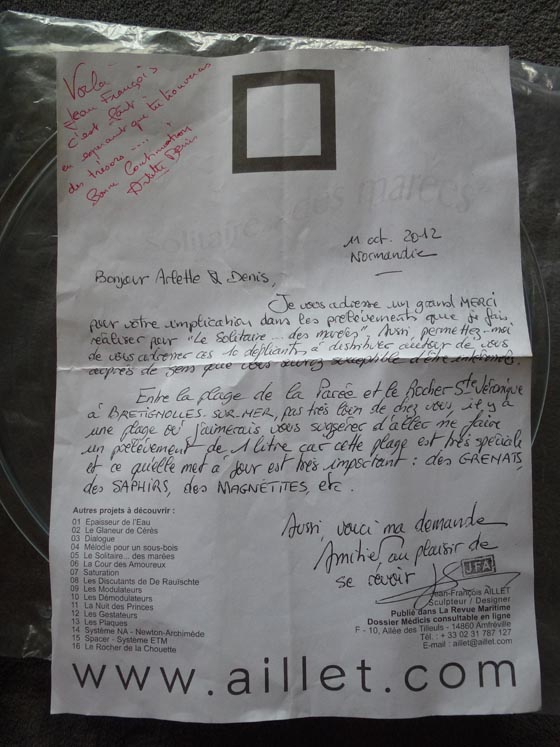 Voilà
Jean François
c'est fait
en espérant que tu trouveras
des trésors....
Bonne Continuation
Arlette Denis
11 oct. 2012
Normandie
Bonjour Arlette & Denis,
Je vous adresse un grand MERCI
pour votre implication dans les prélèvements que je fais
réaliser pour "Le Solitaire... des marées". Aussi, permettez-moi
de vous adresser ces 10 dépliants à distribuer autour de vous
auprès de gens que vous susceptible d'être intéressés.
Entre la plage de la Parée et le Rocher Ste Véronique
à BRETIGNOLLES-SUR-MER, pas très loin de chez vous, il y a
une plage où j'aimerais vous suggérer d'aller me faire
un prélèvement de 1 litre car cette plage est très spéciale
et ce qu'elle met à jour est très important : des GRENATS,
des SAPHIRS, des MAGNÉTITES, etc.
Autres projets à découvrir :
01 Epaisseur de l'Eau
02 Le Glaneur de Cérès
03 Dialogue
04 Mélodie pour un sous-bois
05 Le Solitaire... des marées
06 La Cour des Amoureux
07 Saturation
08 Les Discutants de De Rauïschte
09 Les Modulateurs
10 Les Démodulateurs
11 La Nuit des Princes
12 Les Gestateurs
13 Les Plaques
14 Système NA - Newton-Archimède
15 Spacer - Système ETM
16 Le Rocher de la Chouette
Aussi, voici ma demande
Amitiés, au plaisir de
se revoir
JFA
Jean-François AILLET
Sculpteur / Designer
Publié dans La Revue Maritime
Dossier Médicis consultable en ligne
F - 10, Allée des Tilleuls - 14860 Amfréville
Tél. : + 33 02 31 787 127
E-mail : aillet@aillet.com
www.aillet.com